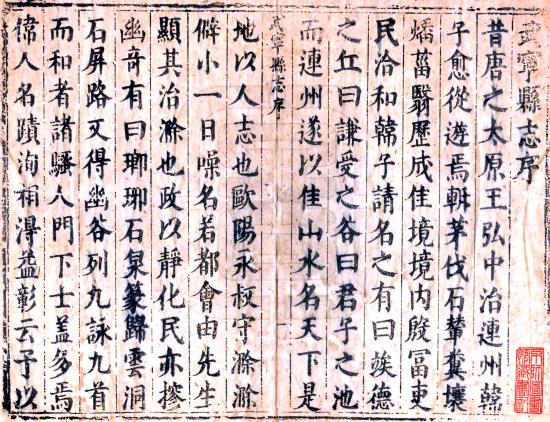 武寧縣志序
昔唐之太原王弘中治連州韓
子愈從遊焉斬茅伐石輦糞壤
燔菑翳歷成佳境境内殷冨吏
民洽和韓子請名之有曰竢德
之丘曰謙受之谷曰君子之池
而連州遂以佳山水名天下是
武寧縣志序
一
地以人志也歐陽永叔守滁滁
僻小一日噪名若都會由先生
顯其治滁也政以靜化民亦摉
幽奇有曰瑯琊石泉篆歸雲洞
石屏路又得幽谷列九詠九首
而和者諸騷人門下士盖多焉
偉人名蹟洵相得益彰云予以